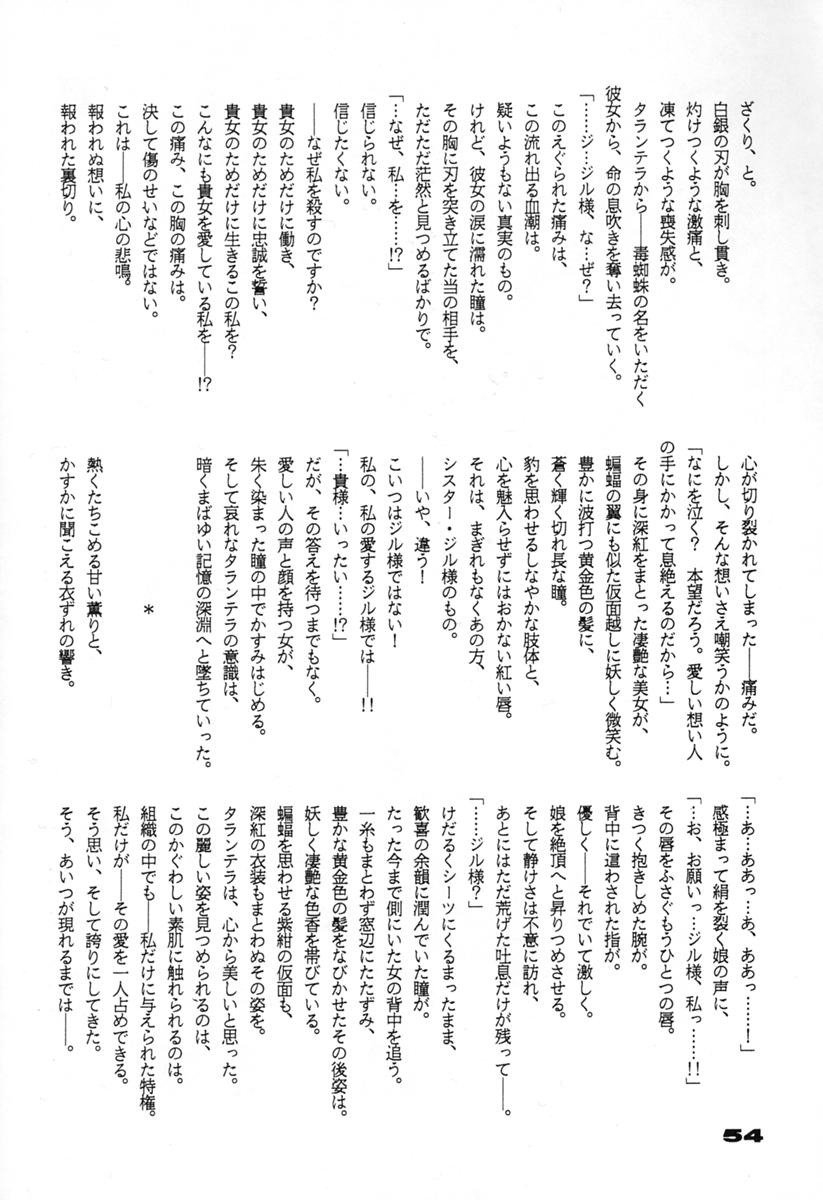 ざくり、と。
白銀の刃が胸を刺し貫き。
灼けつくような激痛と、
凍てつくような喪失感が。
タランテラから――毒蜘蛛の名をいただく
彼女から、命の息吹きを奪い去っていく。
「……ジ…ジル様、な…ぜ？」
このえぐられた痛みは、
この流れ出る血潮は。
疑いようもない真実のもの。
けれど、彼女の涙に濡れた瞳は。
その胸に刃を突き立てた当の相手を、
ただただ茫然と見つめるばかりで。
「…なぜ、私…を……!?」
信じられない。
信じたくない。
――なぜ私を殺すのですか？
貴女のためだけに働き、
貴女のためだけに忠誠を誓い、
貴女のためだけに生きるこの私を？
こんなにも貴女を愛している私を――!?
この痛み、この胸の痛みは。
決して傷のせいなどではない。
これは――私の心の悲鳴。
報われぬ想いに、
報われた裏切り。
心が切り裂かれてしまった――痛みだ。
しかし、そんな想いさえ嘲笑うかのように。
「なにを泣く？　本望だろう。愛しい想い人
の手にかかって息絶えるのだから…」
その身に深紅をまとった凄艶な美女が、
蝙蝠の翼にも似た仮面越しに妖しく微笑む。
豊かに波打つ黄金色の髪に、
蒼く輝く切れ長な瞳。
豹を思わせるしなやかな肢体と、
心を魅入らせずにはおかない紅い唇。
それは、まぎれもなくあの方、
シスター・ジル様のもの。
――いや、違う！
こいつはジル様ではない！
私の、私の愛するジル様では――!!
「…貴様…いったい……!?」
だが、その答えを待つまでもなく。
愛しい人の声と顔を持つ女が、
朱く染まった瞳の中でかすみはじめる。
そして哀れなタランテラの意識は、
暗くまばゆい記憶の深淵へと墜ちていった。
＊
熱くたちこめる甘い薫りと、
かすかに聞こえる衣ずれの響き。
「…あ…ああっ…あ、ああっ………！」
感極まって絹を裂く娘の声に、
「…お、お願いっ…ジル様、私っ……!!」
その唇をふさぐもうひとつの唇。
きつく抱きしめた腕が。
背中に這わされた指が。
優しく――それでいて激しく。
娘を絶頂へと昇りつめさせる。
そして静けさは不意に訪れ、
あとにはただ荒げた吐息だけが残って――。
「……ジル様？」
けだるくシーツにくるまったまま、
歓喜の余韻に潤んでいた瞳が。
たった今まで側にいた女の背中を追う。
一糸もまとわず窓辺にたたずみ、
豊かな黄金色の髪をなびかせたその後姿は。
妖しく凄艶な色香を帯びている。
蝙蝠を思わせる紫紺の仮面も、
深紅の衣装もまとわぬその姿を。
タランテラは、心から美しいと思った。
この麗しい姿を見つめられるのは、
このかぐわしい素肌に触れられるのは。
組織の中でも――私だけに与えられた特権。
私だけが――その愛を一人占めできる。
そう思い、そして誇りにしてきた。
そう、あいつが現れるまでは――。
54